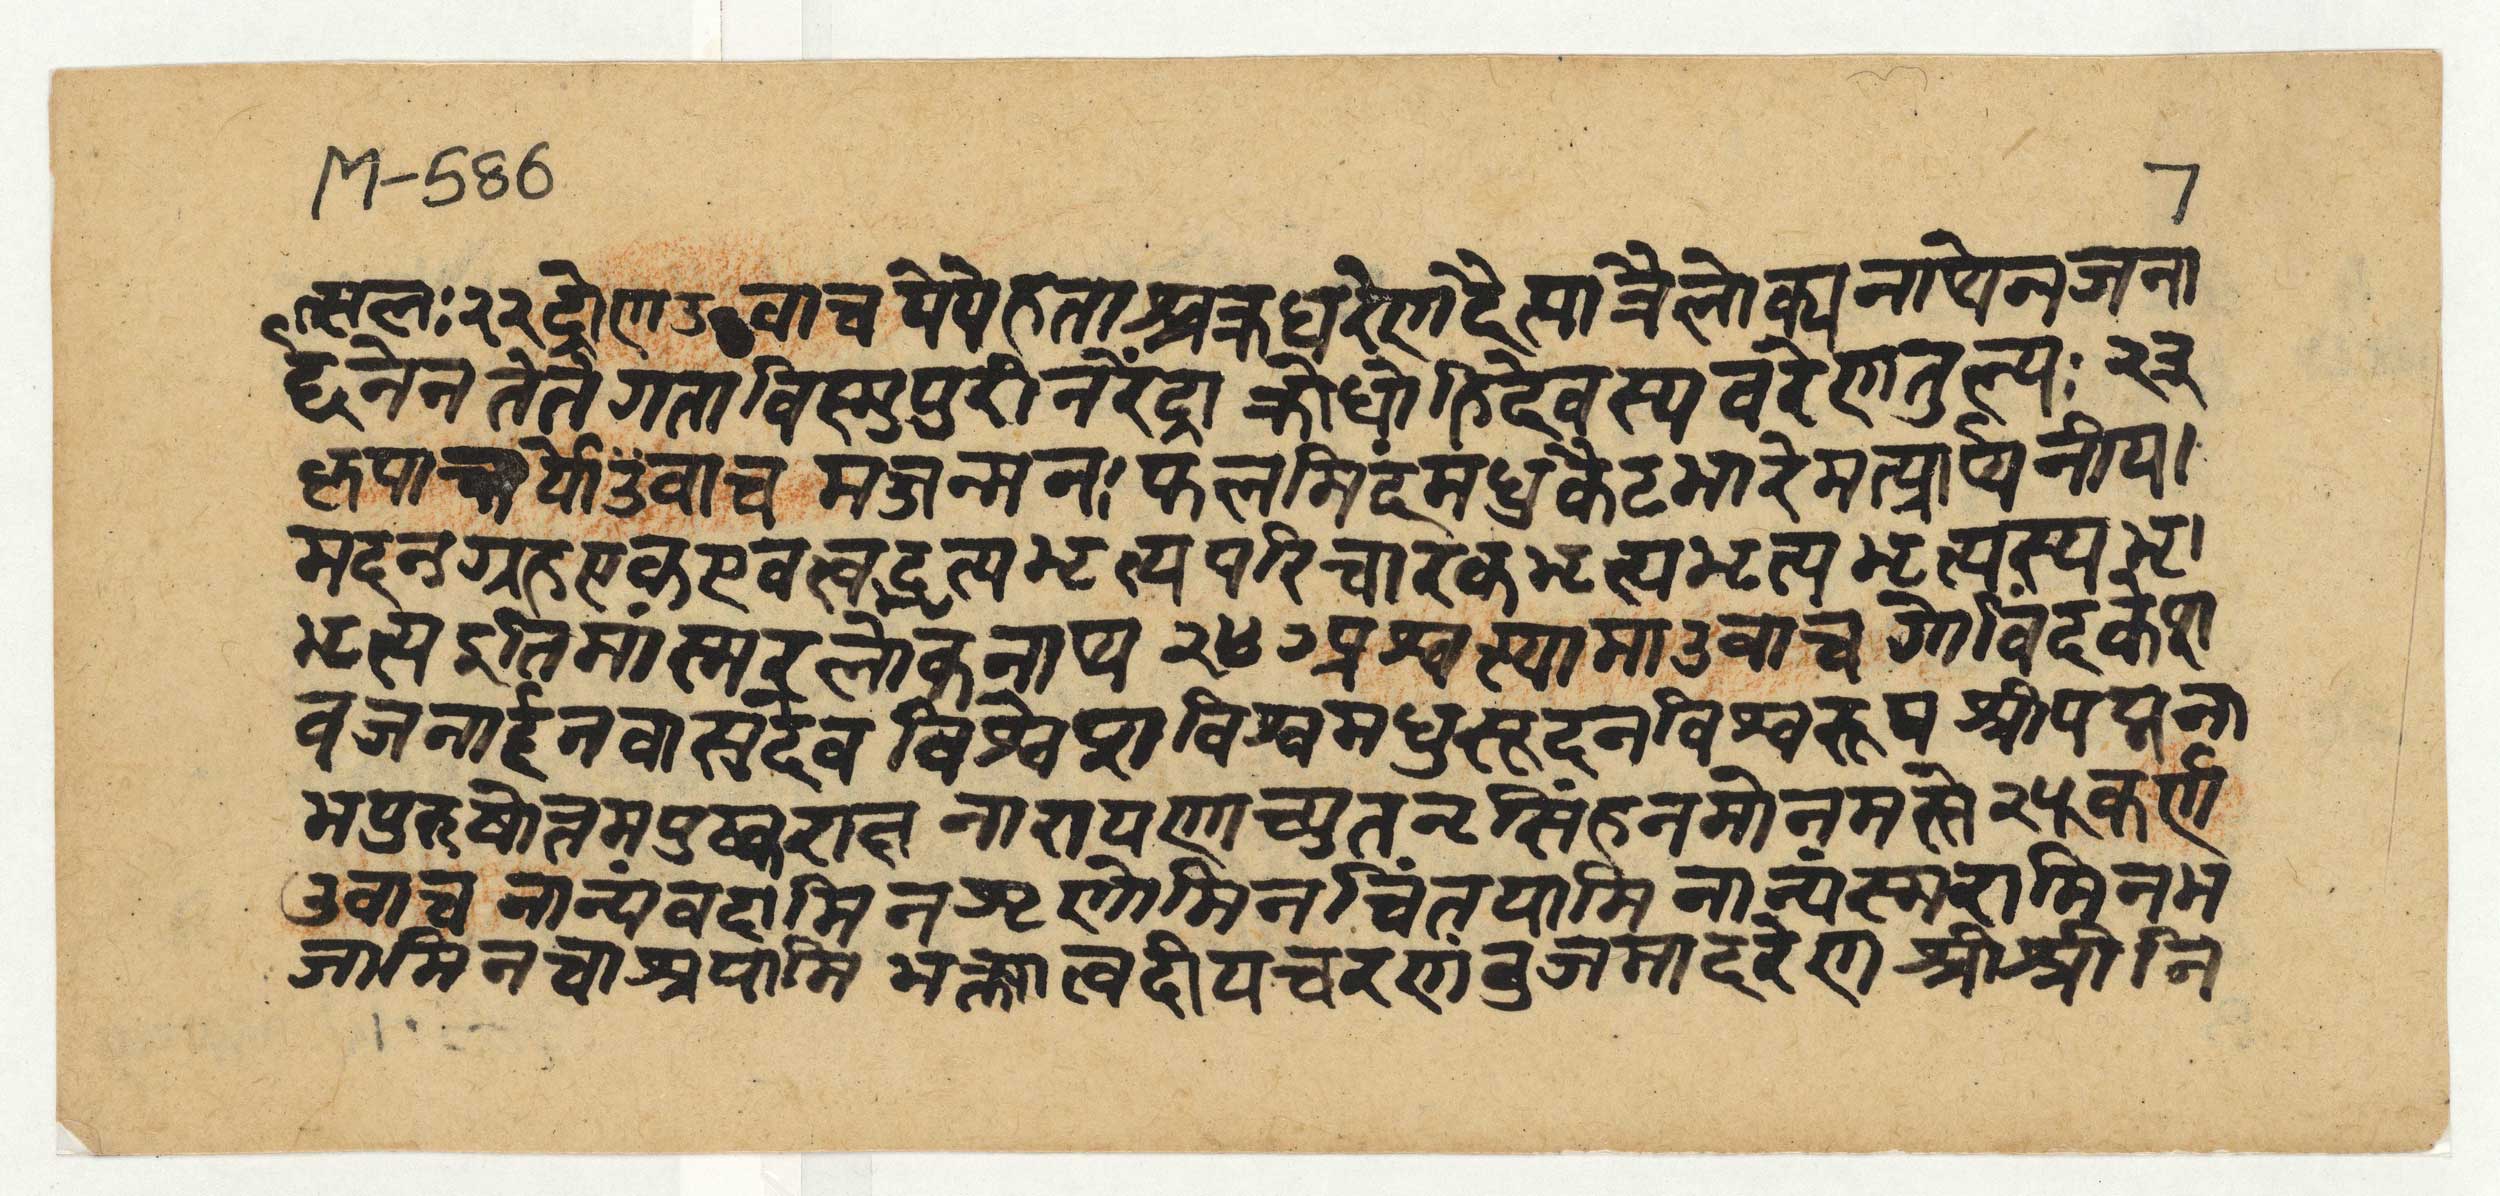 M-586
7
त्सलः २२ द्रोण उवाच येये हताश्चक्रधरेण दैत्या त्रैलोक्यनाथेन जना
र्द्दनेन तेते गता विष्णुपुरीं नरेंद्रा क्रोधोहि देवस्य वरेण तुल्यः २३
कृपाचार्योउवाच मज्जन्मनः फलमिदं मधुकैटभारे मत्प्रार्थनीय।
मदनग्रह एक एव त्वद्भृत्यभृत्यपरिचारकभृत्यभृत्यभृत्यस्य भृ।
भृत्य इति मां स्मर लोकनाथ २४ अश्वस्थामा उवाच गोविंद केश
व जनार्द्दन वासुदेव विश्वेश विश्व मधुसूदन विश्वरूप श्रीपद्मना
भ पुरुषोत्तम पुष्कराक्ष नारायणाच्युत नृसिंह नमो नमस्ते २५ कर्ण
उवाच नान्यं वदामि न शृणोमि न चिंतयामि नान्यं स्मरामि न भ
जामि न चाश्रयामि भक्त्या त्वदीयचरणांबुजमादरेण श्रीश्रीनि